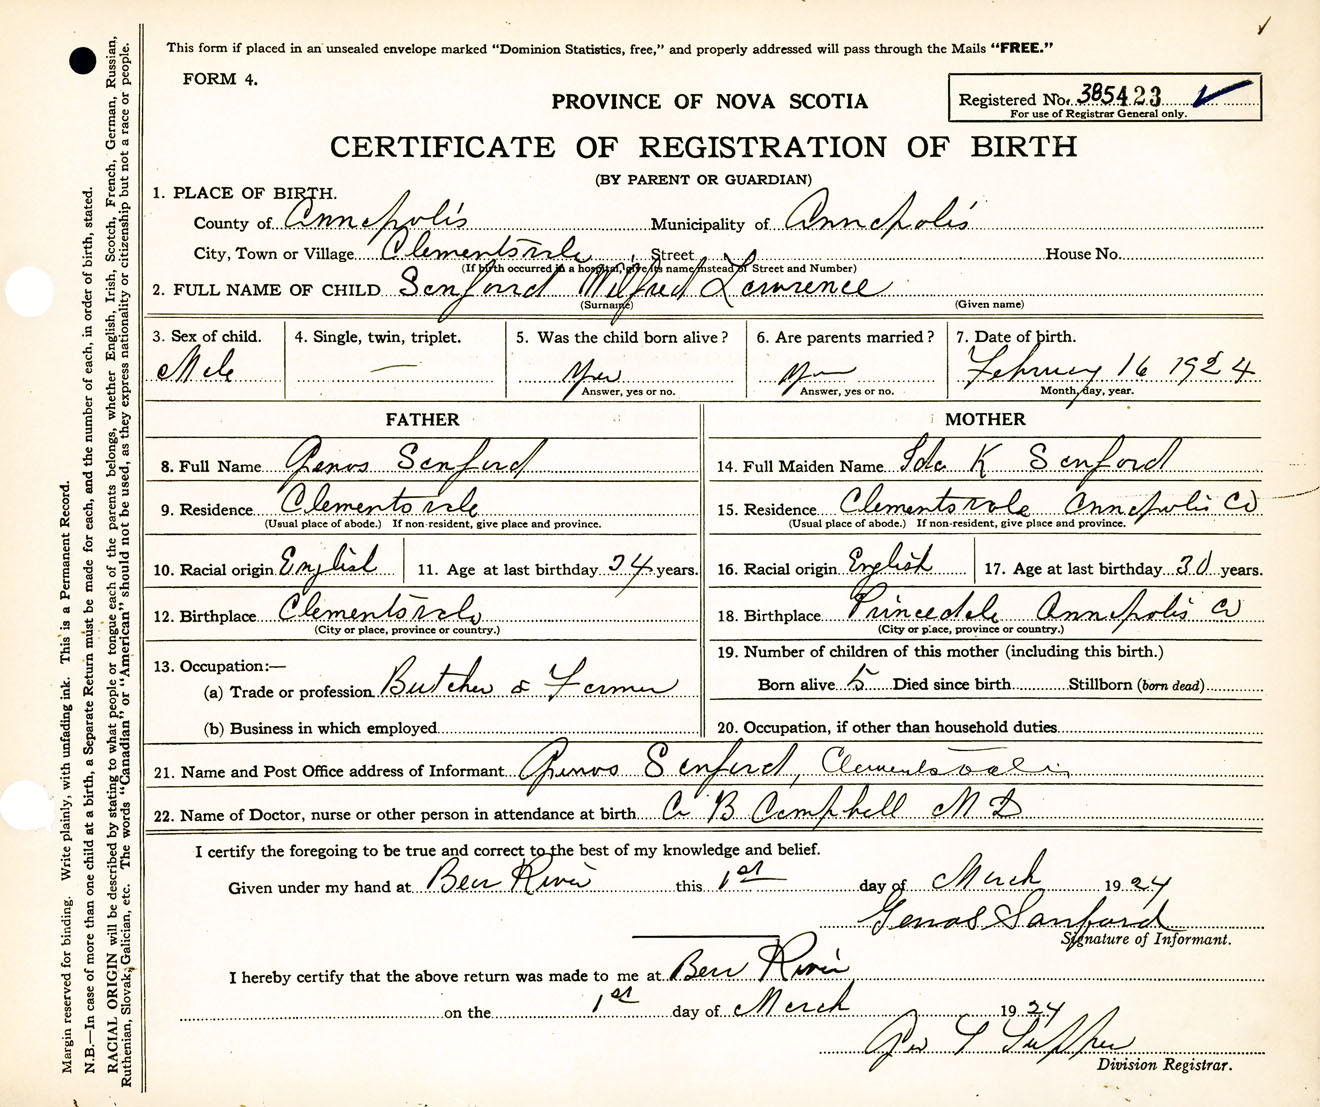 This form if placed in an unsealed envelope marked “Dominion Statistics, free,” and properly addressed will pass through the Mails “FREE.”
FORM 4.
PROVINCE OF NOVA SCOTIA
Registered No. 385423
For use of Registrar General only.
CERTIFICATE OF REGISTRATION OF BIRTH
(BY PARENT OR GUARDIAN)
1. PLACE OF BIRTH.
County of Annapolis Municipality of Annapolis
City, Town or Village Clementsvale Street House No.
(If birth occurred in a hospital, give its name instead of Street and Number)
2. FULL NAME OF CHILD Sanford Wilfred Lawrence
(Surname) (Given name)
3. Sex of child. 4. Single, twin, triplet. 5. Was the child born alive? 6. Are parents married? 7. Date of birth.
Male — yes yes February 16 1924
Answer, yes or no. Answer, yes or no. Month, day, year.
FATHER MOTHER
8. Full Name Genos Sanford 14. Full Maiden Name Ida K Sanford
9. Residence Clementsvale 15. Residence Clementsvale Annapolis Co
(Usual place of abode.) If non-resident, give place and province. (Usual place of abode.) If non-resident, give place and province.
10. Racial origin English 11. Age at last birthday 34 years. 16. Racial origin English 17. Age at last birthday 30 years.
12. Birthplace Clementsvale 18. Birthplace Princedale Annapolis Co
(City or place, province or country.) (City or place, province or country.)
13. Occupation:— 19. Number of children of this mother (including this birth.)
(a) Trade or profession Butcher & Farmer Born alive 5 Died since birth Stillborn (born dead)
(b) Business in which employed 20. Occupation, if other than household duties
21. Name and Post Office address of Informant Genos Sanford, Clementsvale
22. Name of Doctor, nurse or other person in attendance at birth A B Campbell M D
I certify the foregoing to be true and correct to the best of my knowledge and belief.
Given under my hand at Bear River this 1st day of March 1924
Genos Sanford
Signature of Informant.
I hereby certify that the above return was made to me at Bear River
on the 1st day of March 1924
Geo
Division Registrar.
Margin reserved for binding. Write plainly, with unfading ink. This is a Permanent Record.
N.B.—In case of more than one child at a birth, a Separate Return must be made for each, and the number of each, in order of birth, stated.
RACIAL ORIGIN will be described by stating to what people or tongue each of the parents belongs, whether English, Irish, Scotch, French, German, Russian,
Ruthenian, Slovak, Galician, etc. The words “Canadian” or “American” should not be used, as they express nationality or citizenship but not a race or people.